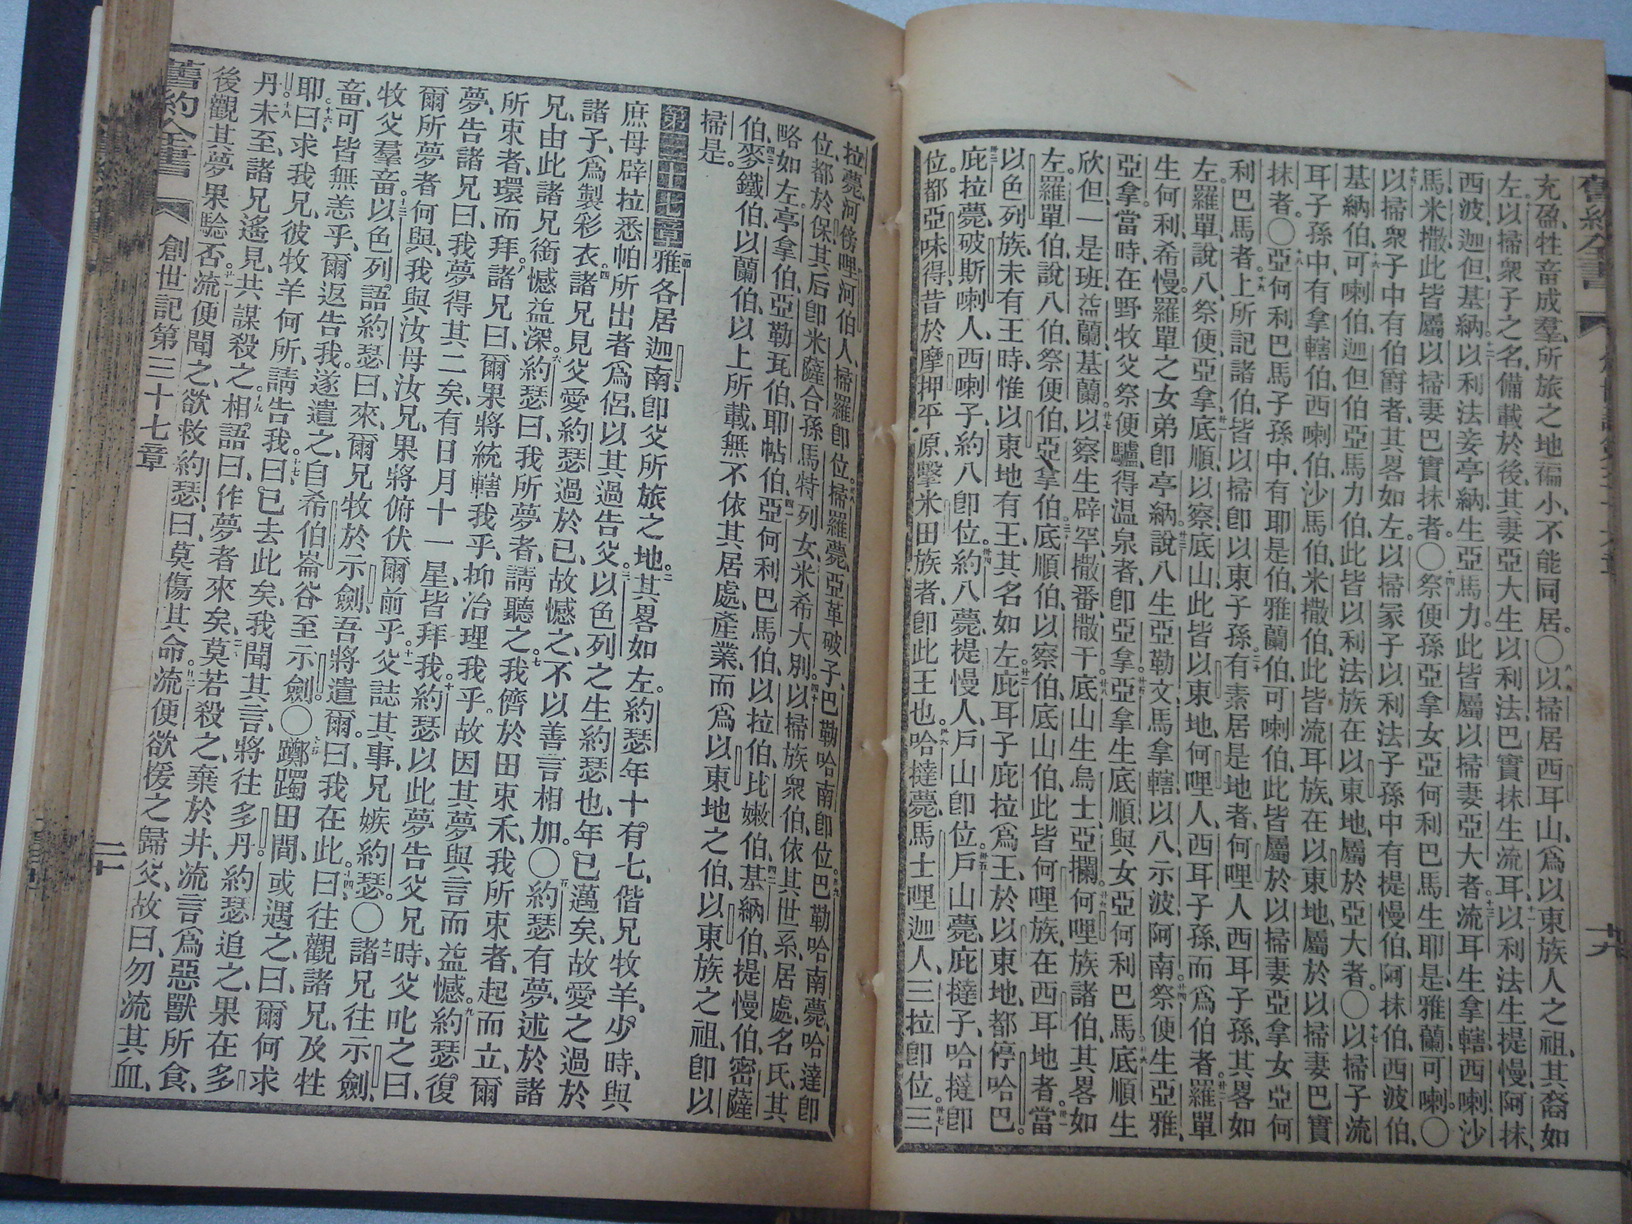 舊約全書
十九
充盈、牲畜成羣、所旅之地褊小、不能同居。〇以掃居西耳山、爲以東族人之祖、其裔如
左、以掃衆子之名、備載於後、其妻亞大生以利法、巴實抹生流耳、以利法生提慢、阿抹、
西波、迦但、基納、以利法妾亭納、生亞馬力、此皆屬以掃妻亞大者。流耳生拿轄、西喇、沙
馬、米撒、此皆屬以掃妻巴實抹者。〇祭便孫亞拿女亞何利巴馬、生耶是、雅蘭、可喇。〇
以掃衆子中有伯爵者、其畧如左。以掃冢子以利法子孫中、有提慢伯、阿抹伯、西波伯、
基納伯、可喇伯、迦但伯、亞馬力伯、此皆以利法族、在以東地、屬於亞大者。〇以掃子流
耳子孫中、有拿轄伯、西喇伯、沙馬伯、米撒伯、此皆流耳族、在以東地、屬於以掃妻巴實
抹者。〇亞何利巴馬子孫中、有耶是伯、雅蘭伯、可喇伯、此皆屬於以掃妻亞拿女亞何
利巴馬者、上所記諸伯、皆以掃卽以東子孫。有素居是地者、何哩人西耳子孫、其畧如
左、羅單、說八、祭便、亞拿、底順、以察、底山、此皆以東地何哩人西耳子孫、而爲伯者、羅單
生何利、希慢、羅單之女弟、卽亭納。說八生亞勒文、馬拿轄、以八、示波、阿南、祭便生亞雅、
亞拿、當時在野、牧父祭便驢、得温泉者、卽亞拿、亞拿生底順、與女亞何利巴馬、底順生
欣但、一是班、益蘭、基蘭、以察生辟罕、撒番、撒干、底山生烏士、亞攔。何哩族諸伯、其畧如
左。羅單伯、說八伯、祭便伯、亞拿伯、底順伯、以察伯、底山伯、此皆何哩族、在西耳地者、當
以色列族未有王時、惟以東地有王、其名如左、庇耳子庇拉爲王、於以東地、都停哈巴。
庇拉薨、破斯喇人、西喇子、約八卽位、約八薨、提慢人、戶山卽位、戶山薨、庇撻子、哈撻卽
位、都亞味得、昔於摩押平原、擊米田族者、卽此王也、哈撻薨、馬士哩迦人、三拉卽位。三
拉薨、河傍哩河伯人、掃羅卽位、掃羅薨、亞革破子、巴勒哈南卽位、巴勒哈南薨、哈達卽
位、都於保、其后卽米薩合孫、馬特列女、米希大別、以掃族衆伯、依其世系居處名氏、其
略如左、亭拿伯、亞勒瓦伯、耶帖伯、亞何利巴馬伯、以拉伯、比嫩伯、基納伯、提慢伯、密薩
伯、麥鐵伯、以蘭伯、以上所載、無不依其居處產業、而爲以東地之伯、以東族之祖、卽以
掃是。
第三十七章 雅各居迦南、卽父所旅之地。其畧如左。約瑟年十有七、偕兄牧羊、少時與
庶母辟拉悉帕所出者爲侶、以其過告父、以色列之生約瑟也、年已邁矣、故愛之過於
諸子、爲製彩衣、諸兄見父愛約瑟過於已、故憾之、不以善言相加。〇約瑟有夢、述於諸
兄、由此諸兄銜憾益深、約瑟曰、我所夢者、請聽之、我儕於田束禾、我所束者起而立、爾
所束者、環而拜、諸兄曰、爾果將統轄我乎、抑治理我乎、故因其夢與言而益憾約瑟。復
夢、告諸兄曰、我夢得其二矣、有日月十一星皆拜我、約瑟以此夢告父兄、時父叱之曰、
爾所夢者何與、我與汝母汝兄、果將俯伏爾前乎、父誌其事、兄嫉約瑟。〇諸兄往示劍、
牧父羣畜、以色列語約瑟曰、來、爾兄牧於示劍、吾將遣爾。曰、我在此。曰、往觀諸兄、及牲
畜、可皆無恙乎、爾返告我。遂遣之、自希伯崙谷至示劍〇躑躅田間、或遇之、曰、爾何求
耶、曰、求我兄、彼牧羊何所、請告我。曰、已去此矣、我聞其言、將往多丹。約瑟追之、果在多
丹、未至、諸兄遙見、共謀殺之。相語曰、作夢者來矣、莫若殺之、棄於井、流言爲惡獸所食、
後觀其夢果驗否。流便聞之、欲救約瑟、曰、莫傷其命、流便欲援之歸父、故曰、勿流其血、
舊約全書
創世記第三十七章
二十